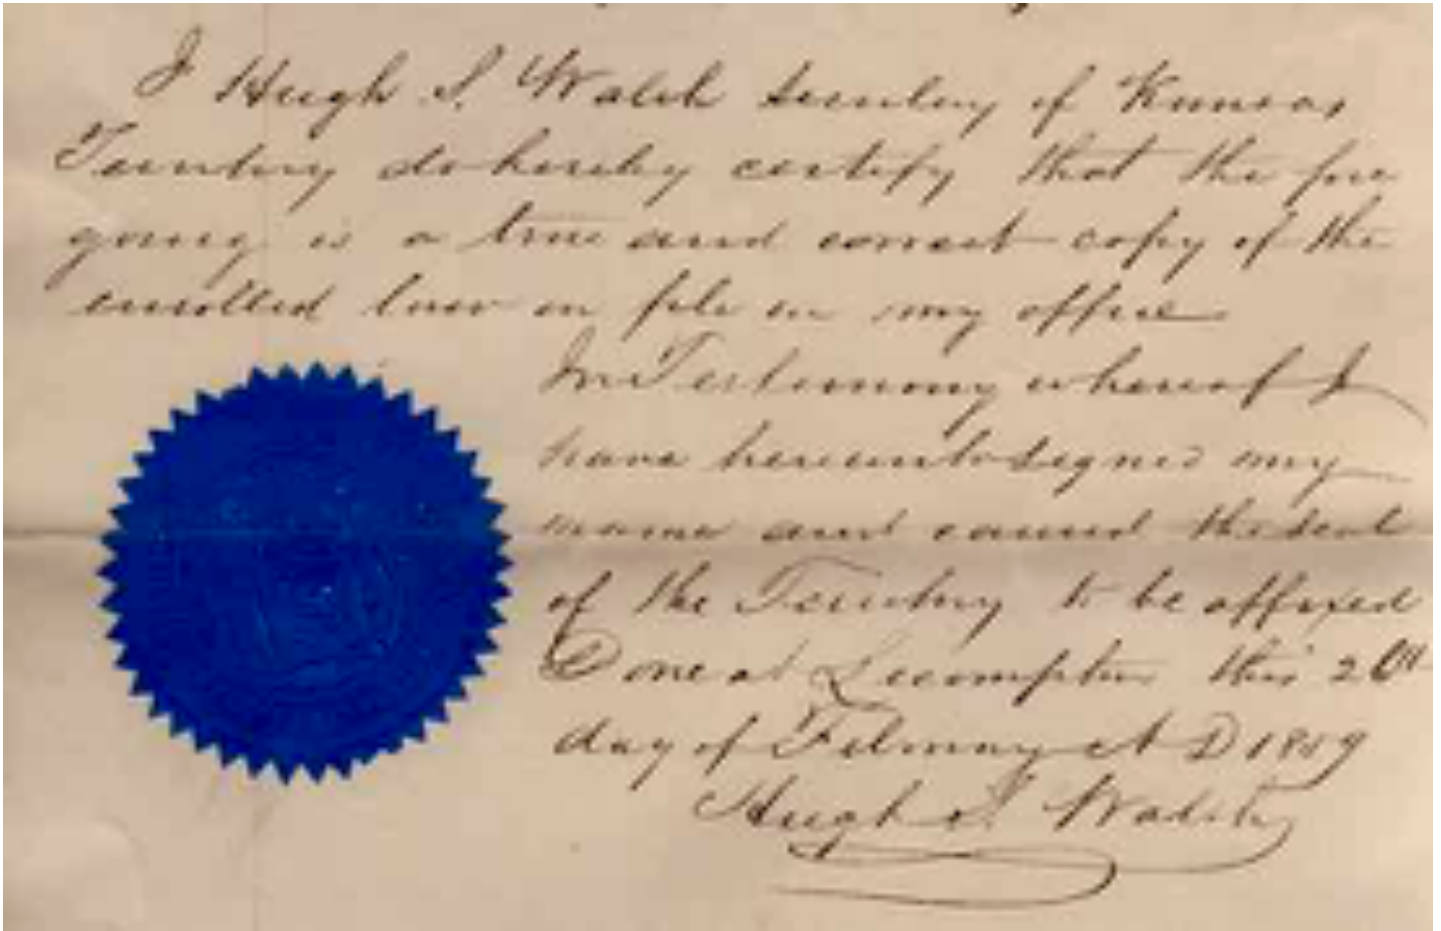 I Hugh S. Walsh Secretary of Kansas
Territory do hereby certify that the fore
going is a true and correct copy of the
enrolled law on file in my office
In Testimony whereof I
have hereunto signed my
name and caused the seal
of the Territory to be affixed
Done at Lecompton this
day of February A D 1859
Hugh S. Walsh